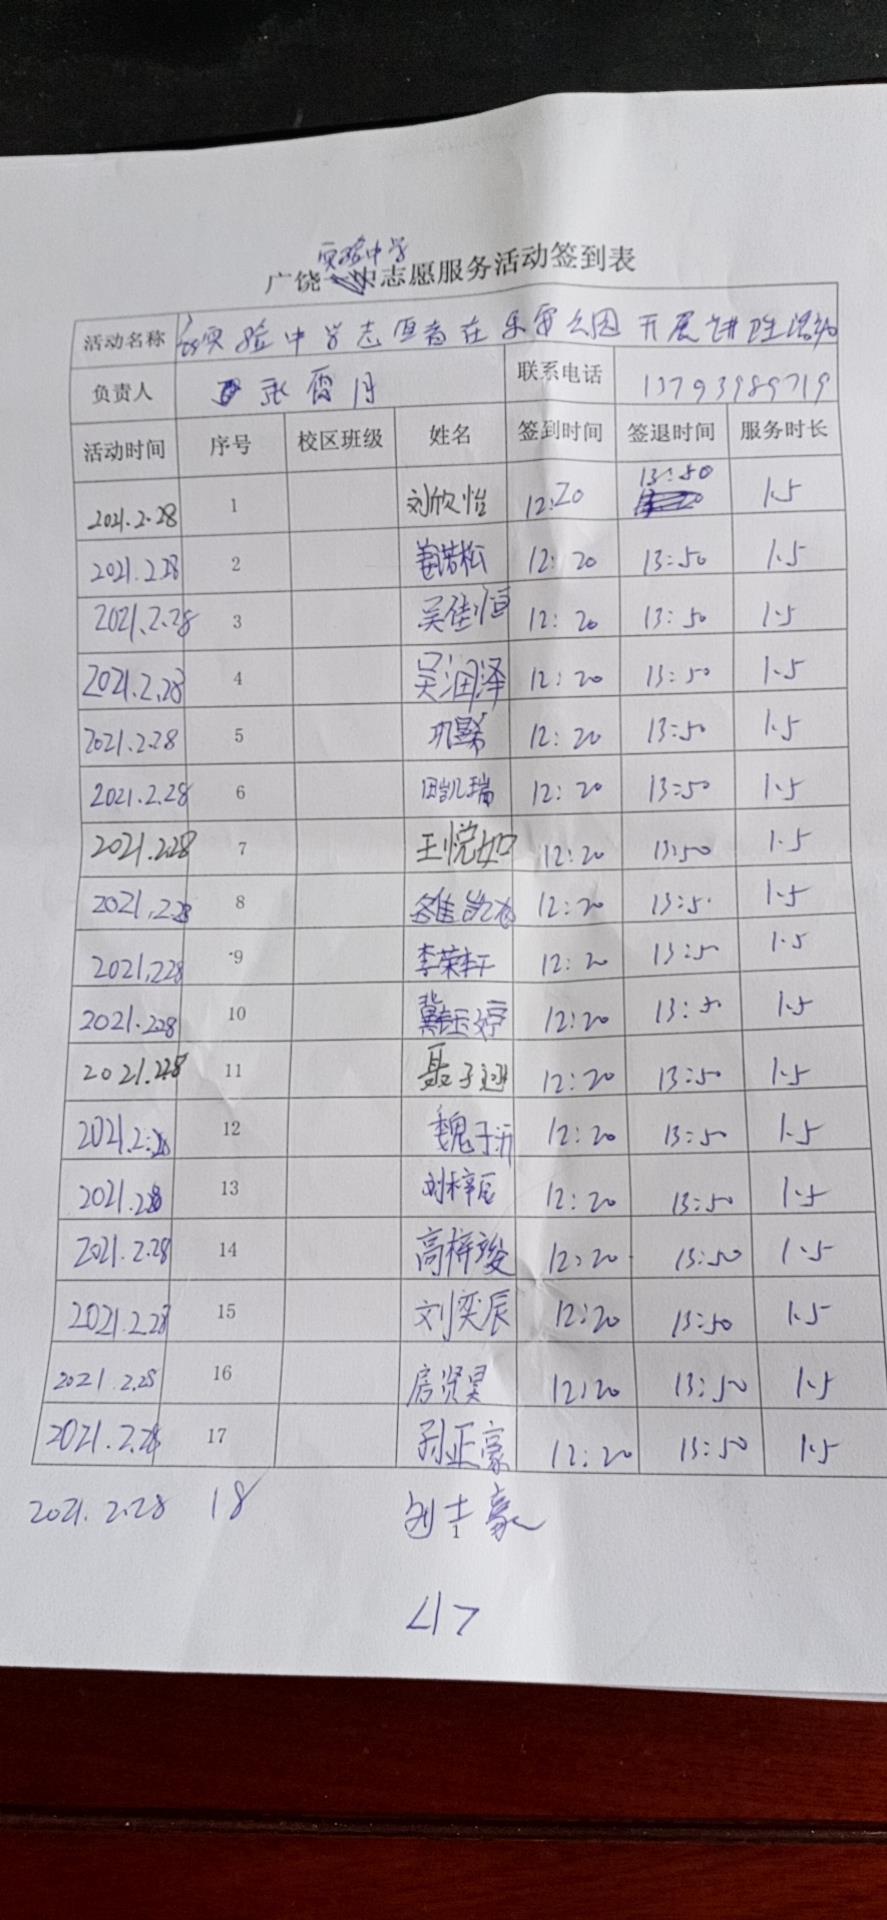 实验中学
广饶志愿服务活动签到表
活动名称 实验中学志愿者在乐安公园开展讲卫生活动
负责人 张雷月 联系电话 13793989719
活动时间 序号 校区班级 姓名 签到时间 签退时间 服务时长
13:50
2021.2.28 1 刘欣怡 12:20 1.5
2021.2.28 2 姜若松 12:20 13:50 1.5
2021.2.28 3 吴佳恒 12:20 13:50 1.5
2021.2.28 4 吴润泽 12:20 13:50 1.5
2021.2.28 5 12:20 13:50 1.5
2021.2.28 6 田凯瑞 12:20 13:50 1.5
2021.2.28 7 王悦如 12:20 13:50 1.5
2021.2.28 8 12:20 13:5 1.5
2021.2.28 9 李荣轩 12:20 13:50 1.5
2021.2.28 10 冀钰婷 12:20 13:50 1.5
2021.2.28 11 聂子 12:20 13:50 1.5
2021.2.28 12 魏子沂 12:20 13:50 1.5
2021.2.28 13 刘梓辰 12:20 13:50 1.5
2021.2.28 14 高梓竣 12:20 13:50 1.5
2021.2.28 15 刘奕辰 12:20 13:50 1.5
2021.2.28 16 房贤昊 12:20 13:50 1.5
2021.2.28 17 孙正豪 12:20 13:50 1.5
2021.2.28 18 刘士豪
1